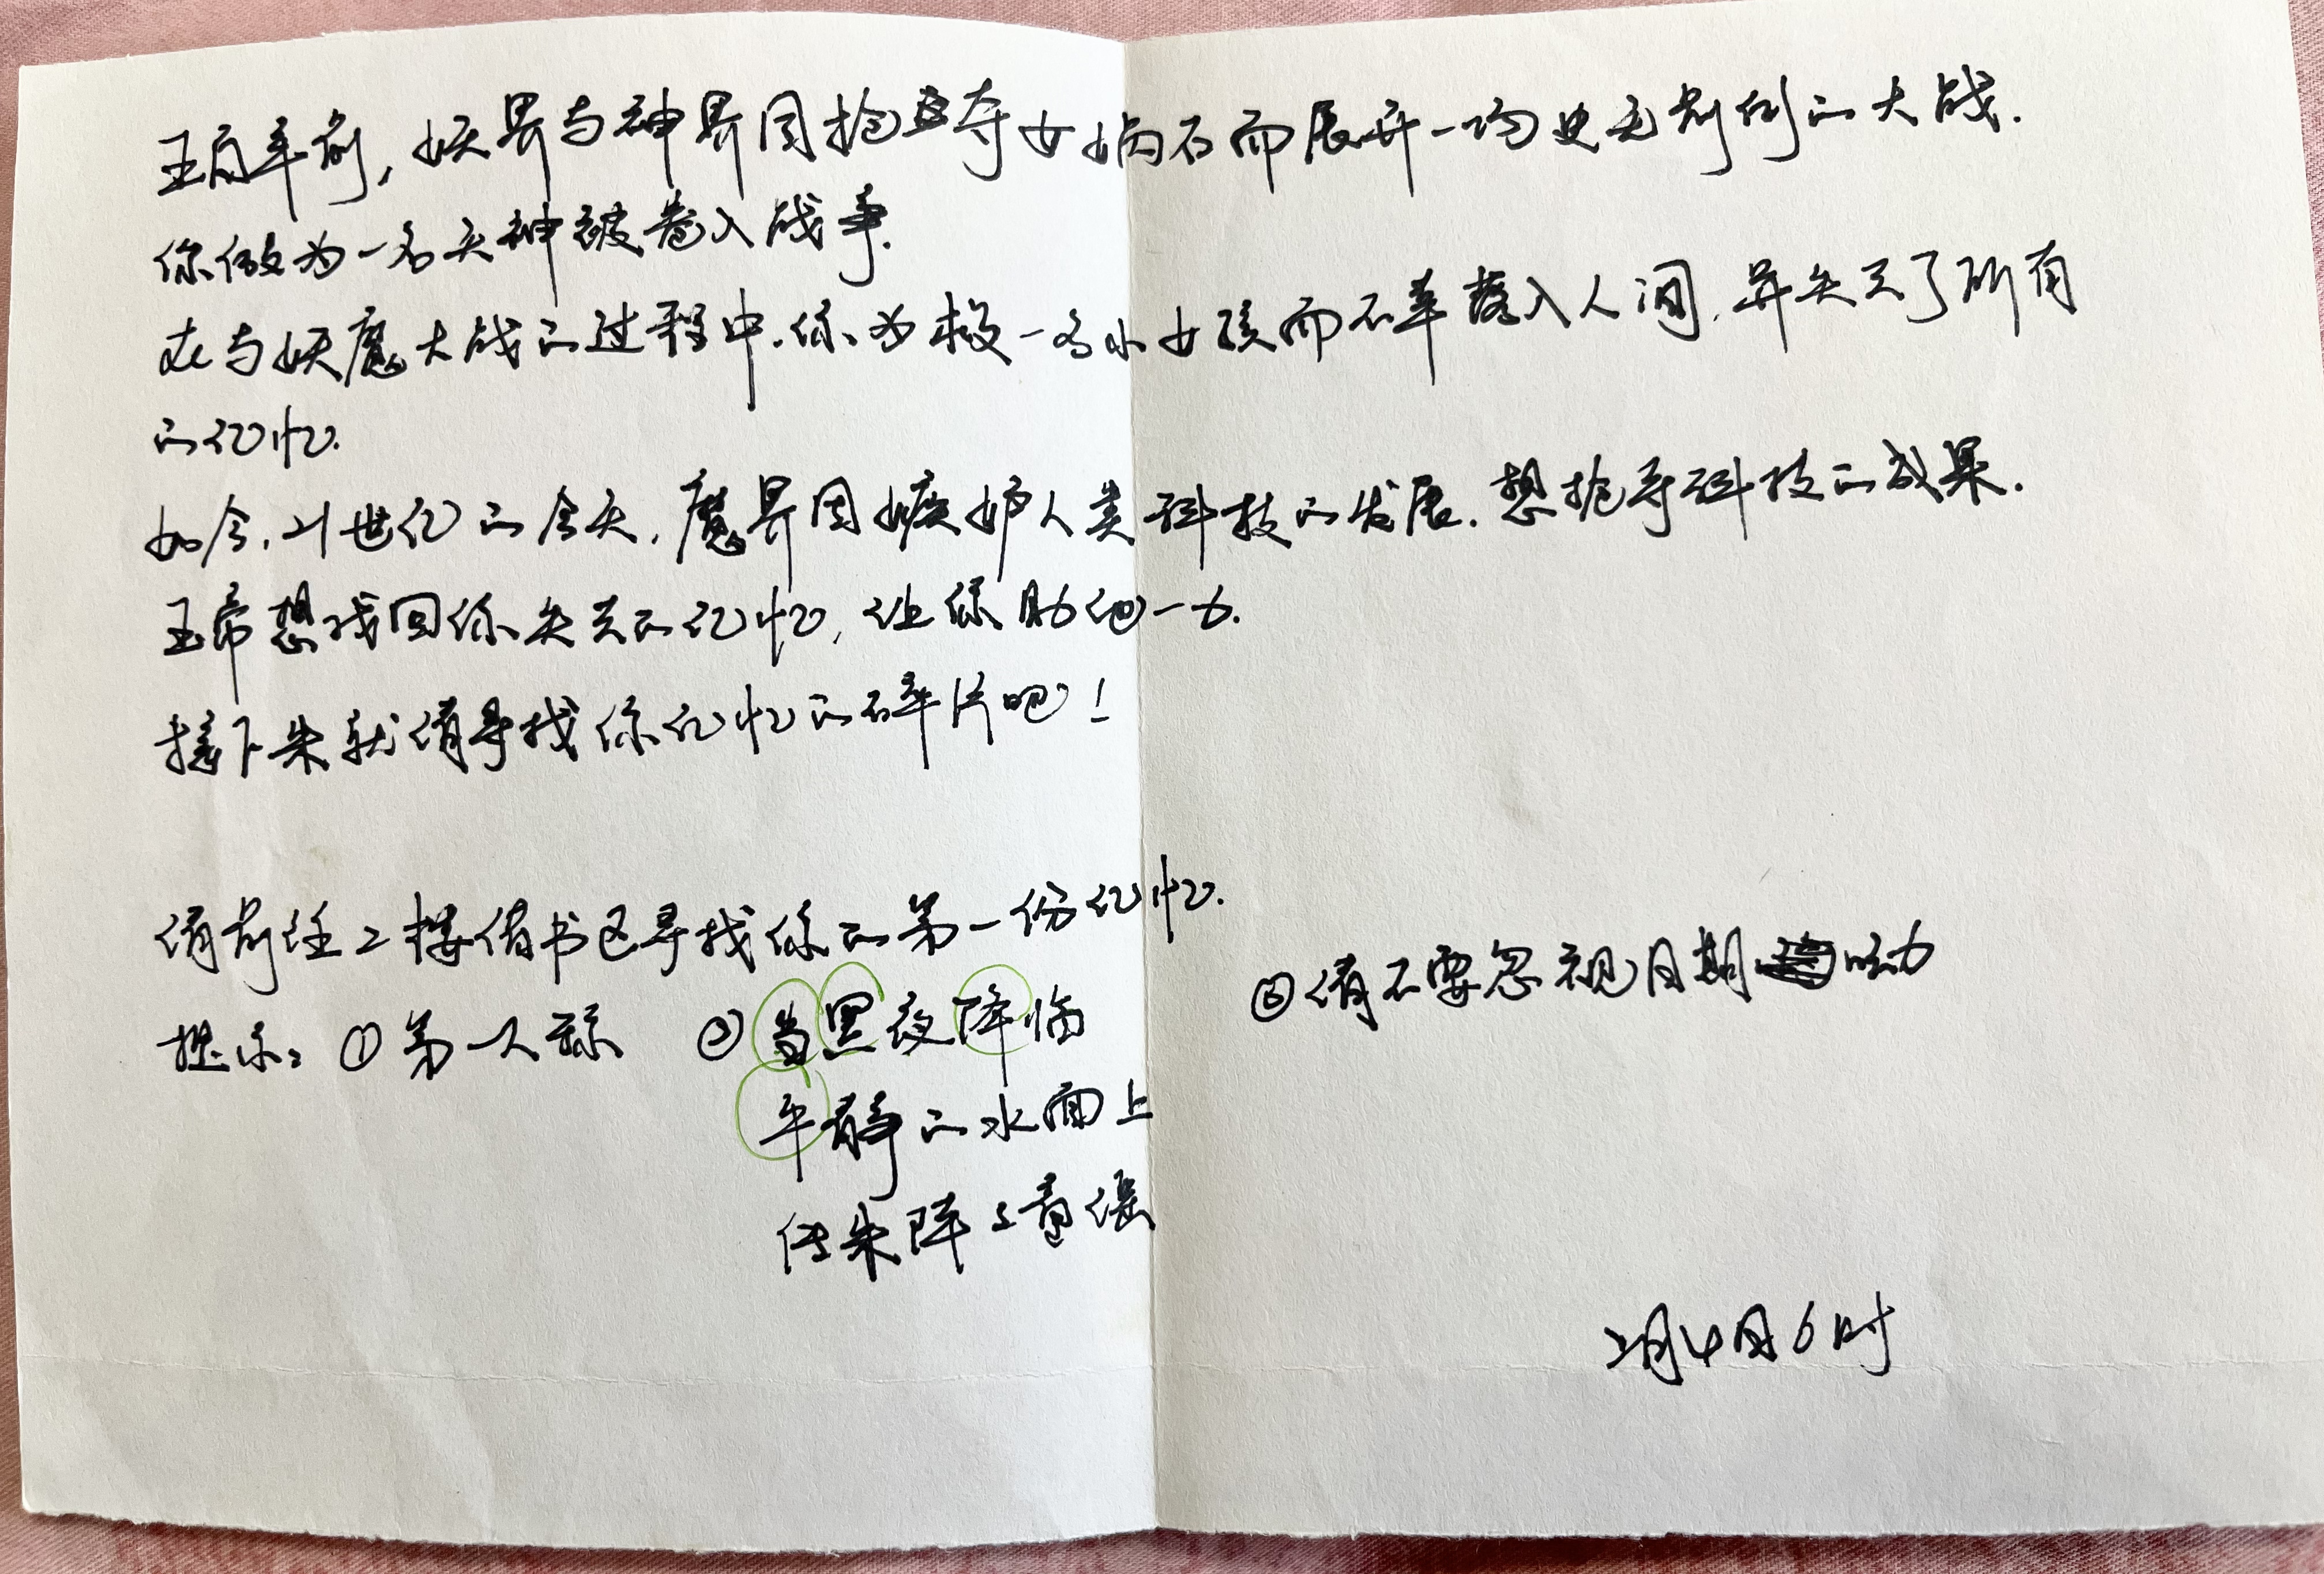 五百年前,妖界与神界因抢夺女娲石而展开一场史无前例的大战.
你做为一名天神被卷入战争.
在与妖魔大战的过程中.你为救一名小女孩而不幸落入人间.并失去了所有
的记忆.
如今,21世纪的今天,魔界因嫉妒人类科技的发展.想抢夺科技的成果.
玉帝想找回你失去的记忆,让你助他一力.
接下来就请寻找你记忆的碎片吧!
请前往二楼借书区寻找你的第一份记忆.
提示:①第一人称 ②当黑夜降临
平静的水面上
传来阵阵
③请不要忽视日期
2月4日6时